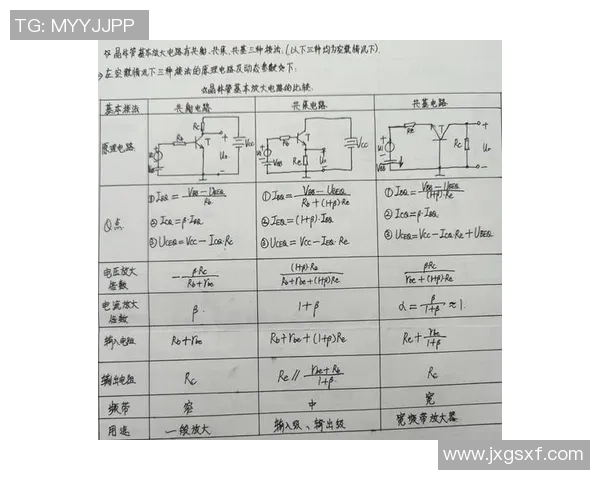 TG: MYYJJPP
☆晶体管基本放大电路有共射、共集、共基三种接法。(以下三种均为空载情况下).
在空载情况下三种接法的原理电路及动态参数如下:
☆晶体管基本放大电路的比较.
基本接法 共射电路 共集电路 共基电路
原理电路
Rb Rc T Uo VCC ui VBB
Rb T Re Uo VCC ui VBB
Re T Rc Uo ui VBB VCC
Q点
① IBQ = (VBB − UBEQ) / Rb
② ICQ = β·IBQ
③ UCEQ = VCC − ICQ·Rc
① IBQ = (VBB − UBEQ) / (Rb + (1+β)Re)
② IEQ = (1+β)·IBQ
③ UCEQ = VCC − IEQ·Re
① IBQ = (VBB − UBEQ) / ((1+β)·Re)
② ICQ = β·IBQ
③ UCEQ = VCC − ICQ·Rc + UBEQ
电压放大倍数 −βRc / (Rb + rbe) (1+β)Re / (Rb + rbe + (1+β)Re) βRc / (rbe + (1+β)Re)
电流放大倍数 β 1+β α = β / (1+β) ≈ 1.
输入电阻 Rb + rbe Rb + rbe + (1+β)Re Re + rbe / (1+β)
输出电阻 Rc Re // (rbe + Rb) / (1+β) Rc
频带 窄 中 宽
用途 一般放大 输入级、输出级 宽频带放大器
www.jxgsxf.com